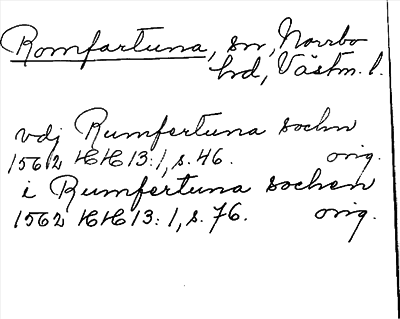 Romfartuna, sn, Norrbo
hd, Västm. l.
vdj Rumfertuna sochn
1562 HH 13:1, s. 46. orig.
i Rumfertuna sochen
1562 HH 13:1, s. 76. orig.